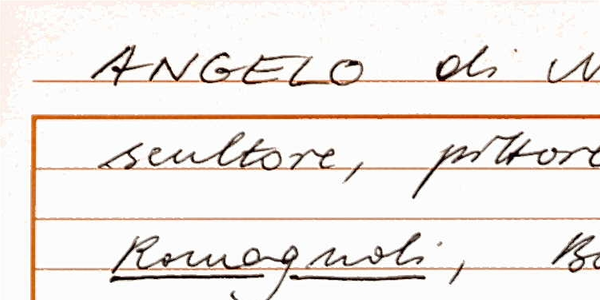 ANGELO di
scultore, pittore
Romagnoli,